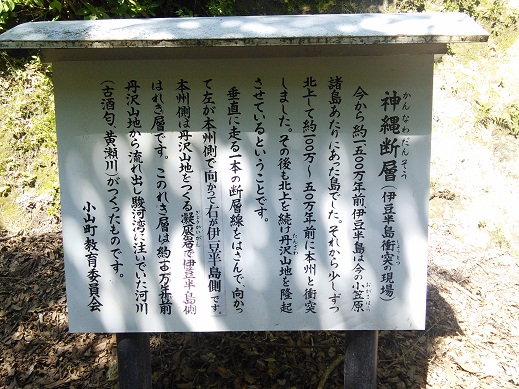 神縄断層（伊豆半島衝突の現場）
かんなわだんそう
しょうとつ
今から約一五〇〇万年前、伊豆半島は今の小笠原
おがさはら
諸島あたりにあった島でした。それから少しずつ
北上して約一〇〇万～五〇万年前に本州と衝突
しました。その後も北上を続け丹沢山地を隆起
たんざわ
させているということです。
垂直に走る一本の断層線をはさんで、向かっ
て左が本州側で向かって右が伊豆半島側です。
本州側は丹沢山地をつくる凝灰岩で伊豆半島側
ぎょうかいがん
はれき層です。このれき層は約万年前
丹沢山地から流れ出し駿河湾に注いでいた河川
（古酒匂、黄瀬川）がつくったものです。
小山町教育委員会